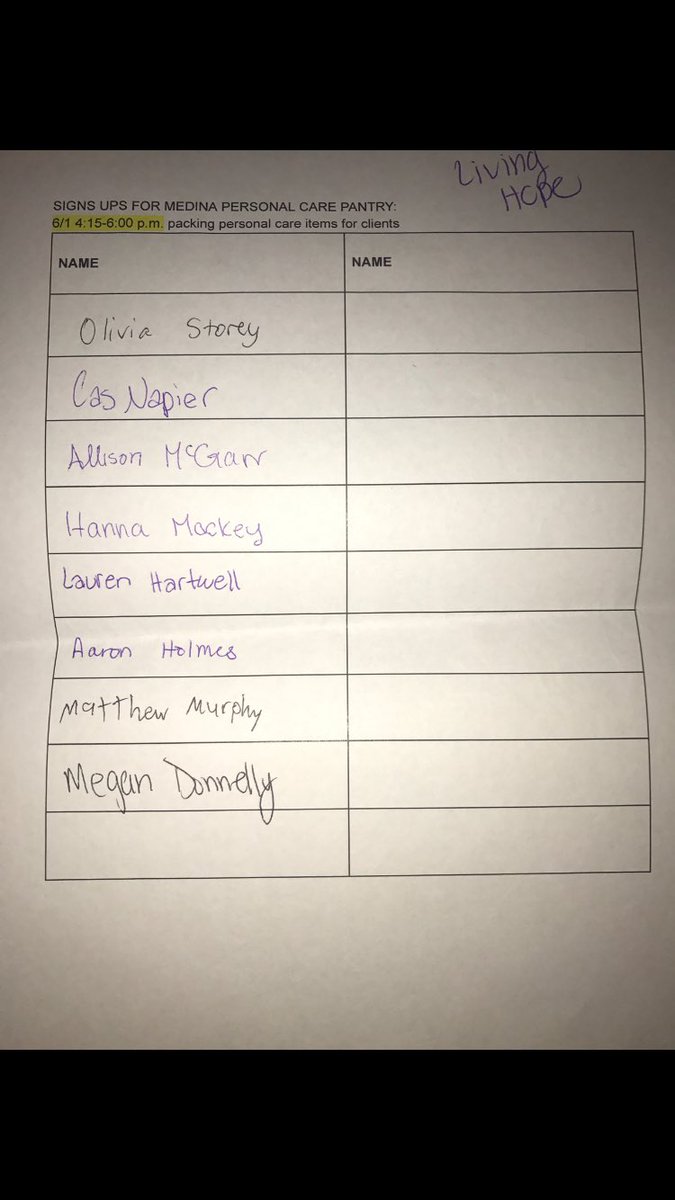 Living
Hope
SIGNS UPS FOR MEDINA PERSONAL CARE PANTRY:
6/1 4:15-6:00 p.m. packing personal care items for clients
NAME NAME
Olivia Storey
Cas Napier
Allison McGarr
Hanna Mackey
Lauren Hartwell
Aaron Holmes
Matthew Murphy
Megan Donnelly